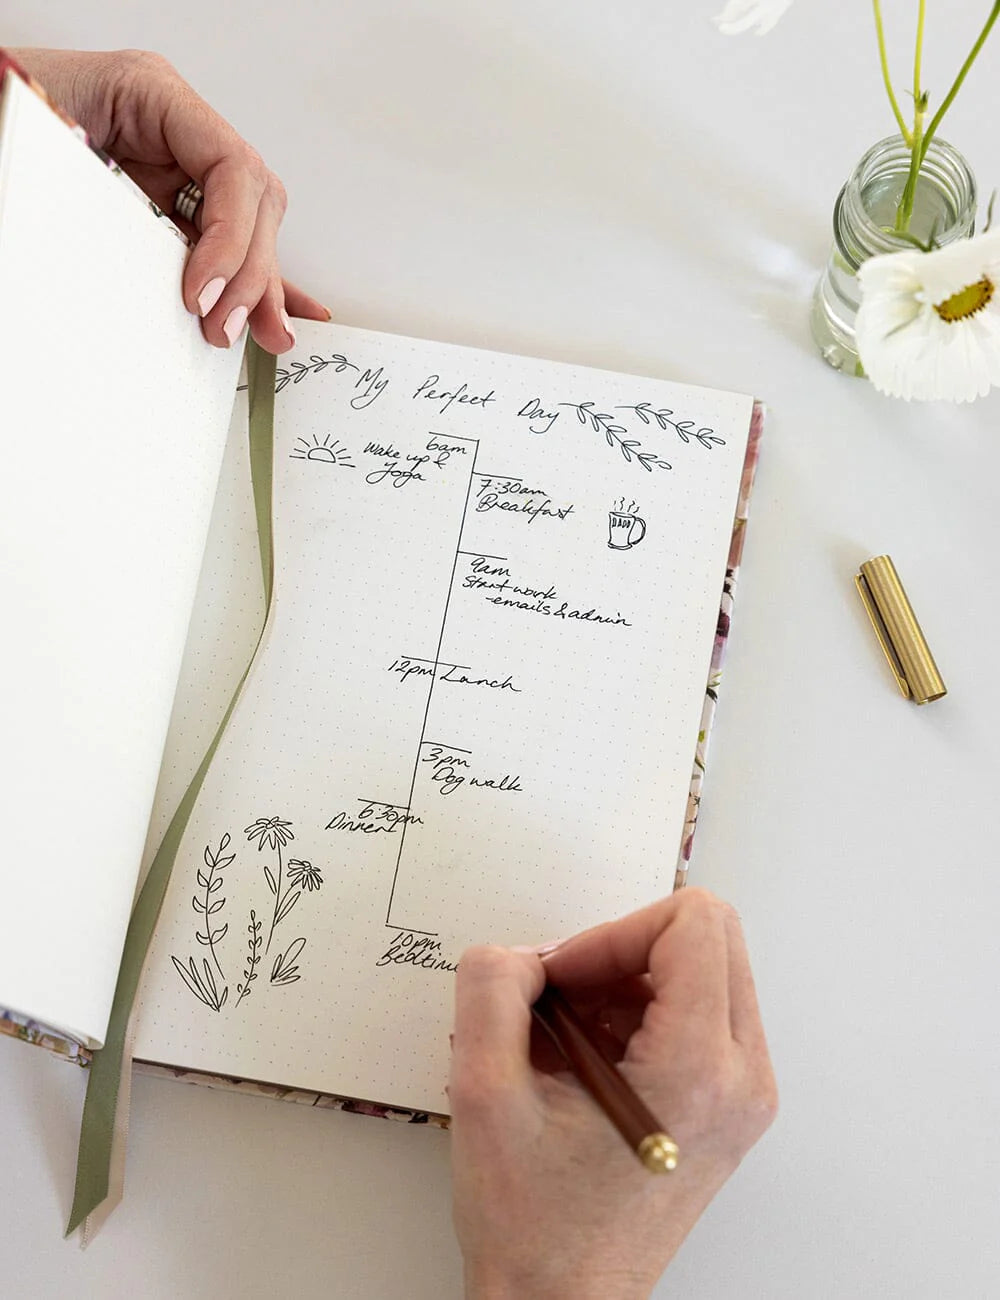 My Perfect Day
6am
Wake up &
Yoga
7:30am
Breakfast
9am
Start work
-emails & admin
12pm Lunch
3pm
Dog walk
6:30pm
Dinner
10pm
Bedtime